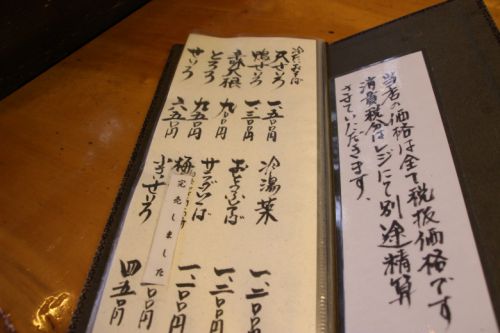 冷たいおそば
天せいろ
一、五〇〇円
鴨せいろ
一、三〇〇円
辛味大根
九〇〇円
とろろ
九五〇円
せいろ
六五〇円
冷湯葉
一、二〇〇円
おとうふそば
一、二〇〇円
一、二〇〇円
梅
完売しました
〇〇円
小せいろ
四五〇円
当店の価格は全て税抜価格です
消費税分はレジにて別途精算
させていただきます、